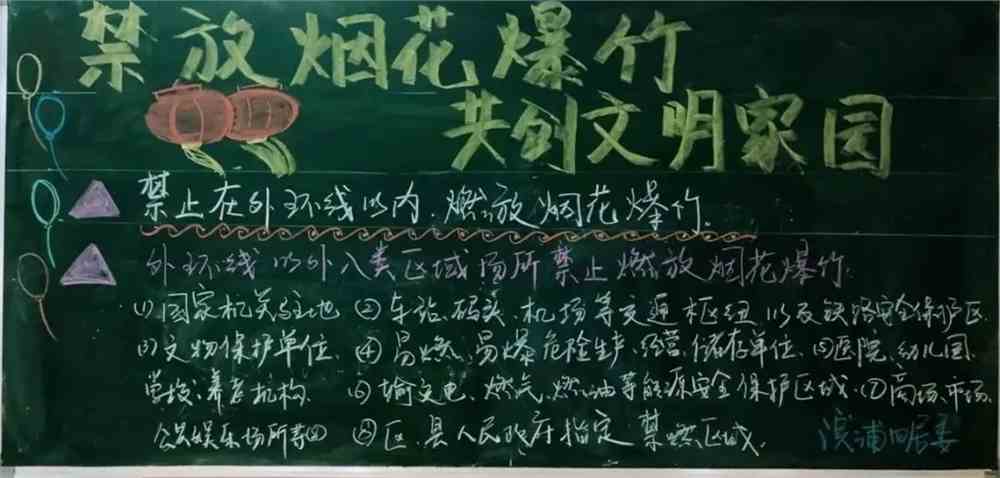 禁放烟花爆竹
共创文明家园
禁止在外环线以内,燃放烟花爆竹.
外环线以外八类区域场所禁止燃放烟花爆竹:
(1)国家机关驻地 (2)车站、码头、机场等交通枢纽以及铁路安全保护区
(3)文物保护单位、(4)易燃、易爆危险生产、经营、储存单位、(5)医院、幼儿园、
学校、养老机构. (6)输变电、燃气、燃油等能源安全保护区域.(7)商场、市场、
公共娱乐场所等 (8)区、县人民政府指定禁燃区域.
滨浦四居委